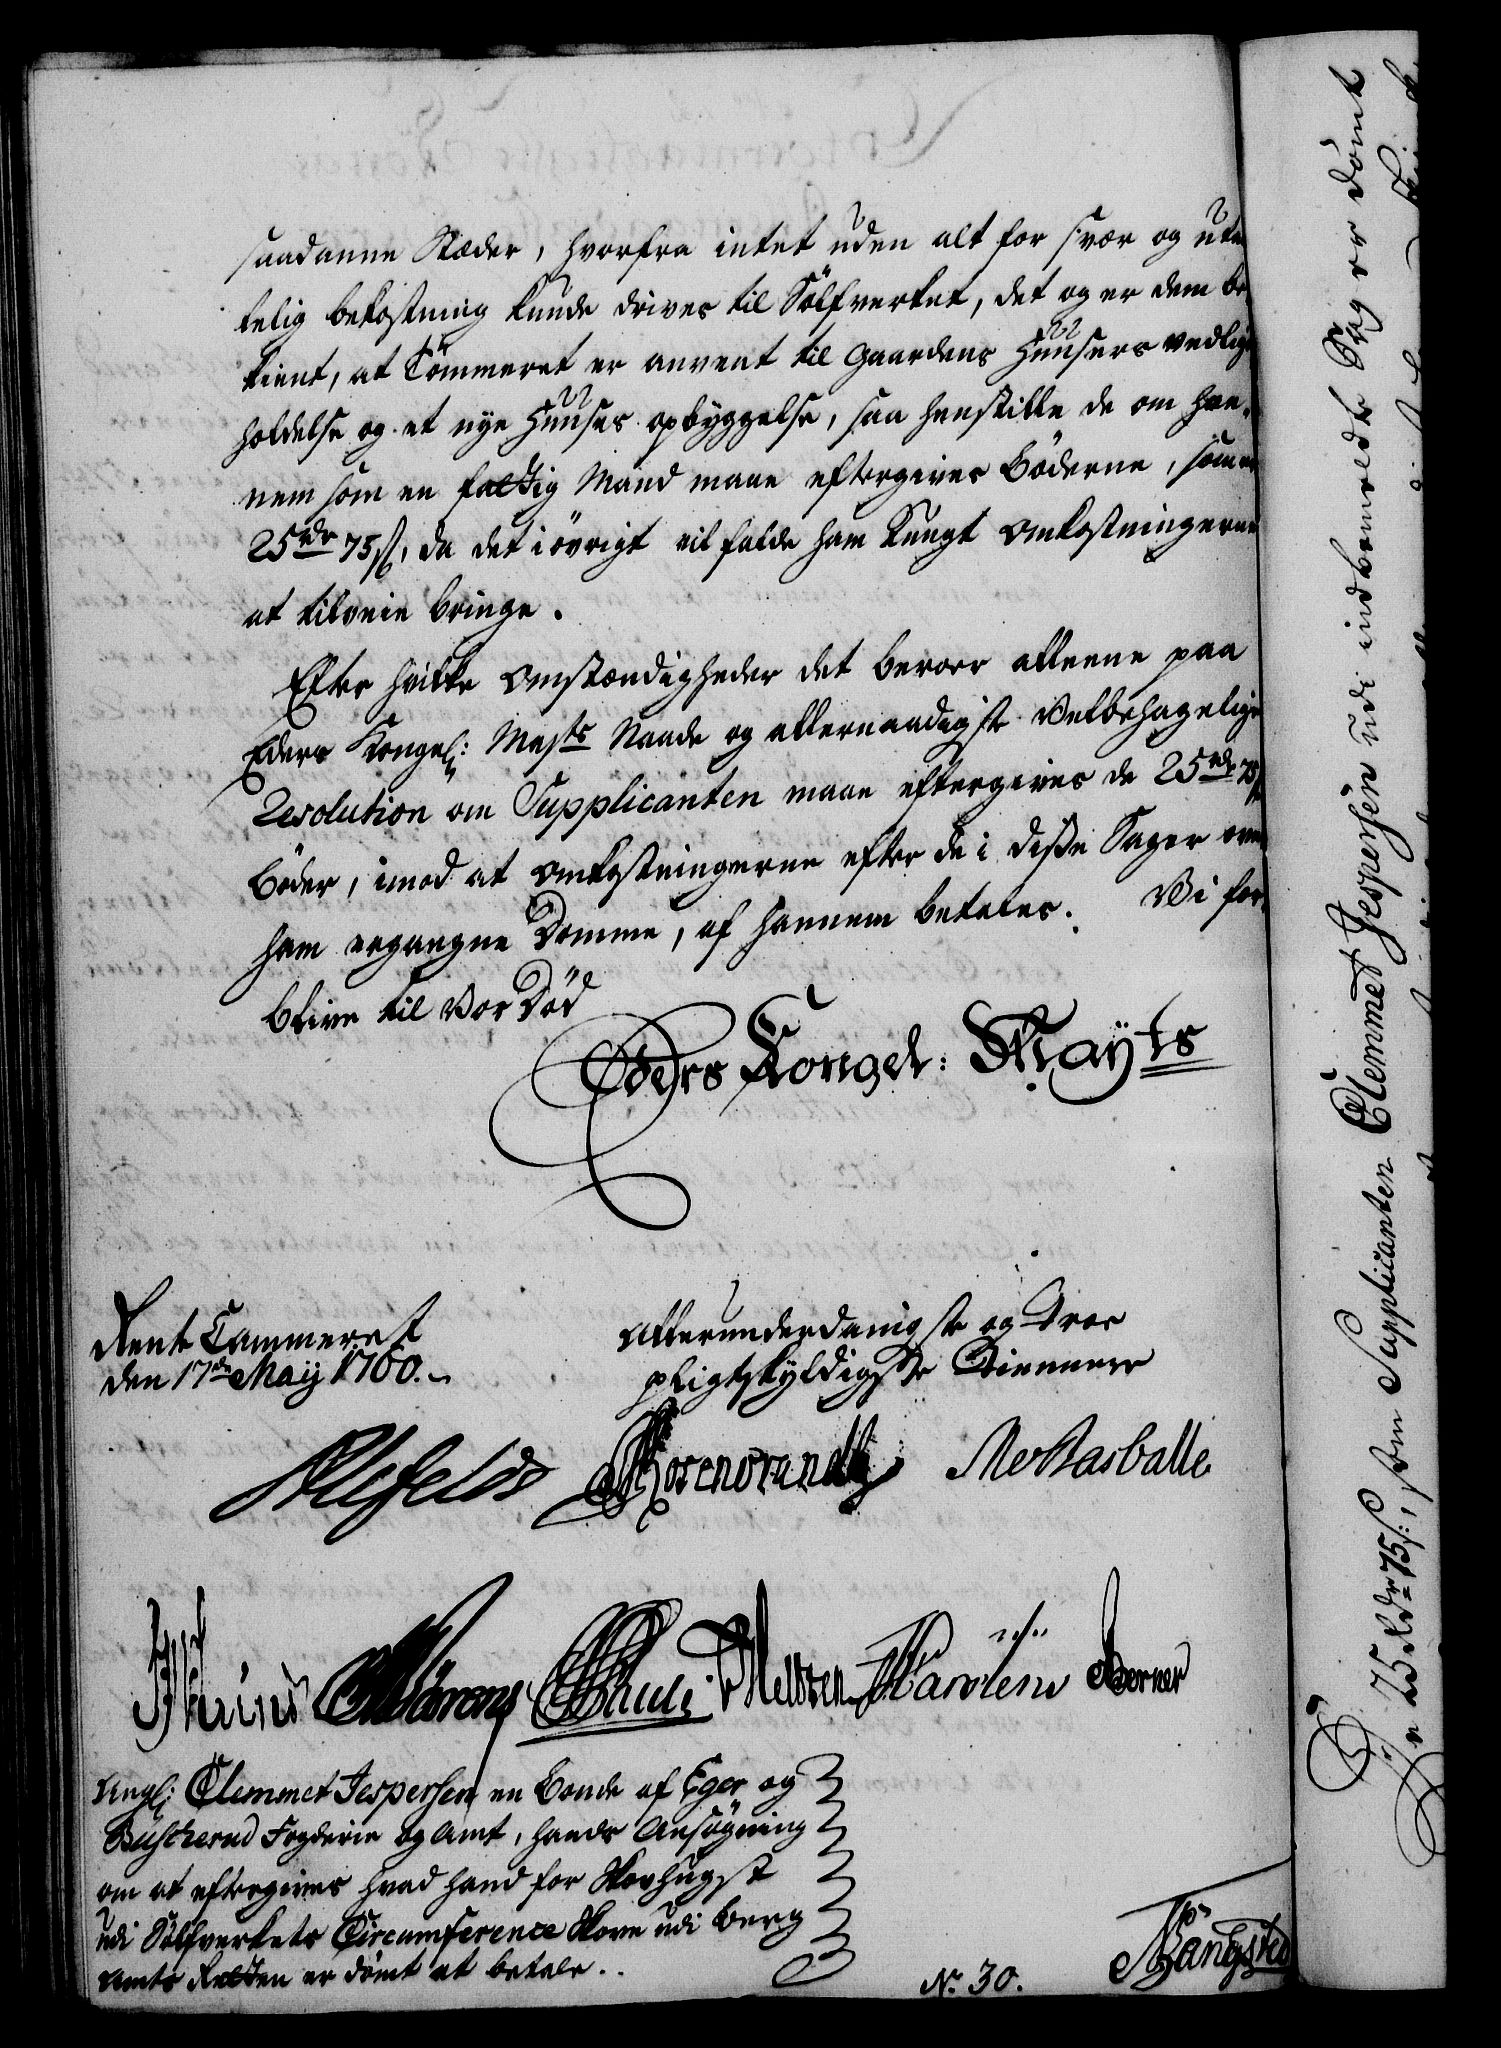 saadanne Stæder, hvorfra intet uden alt for svær og uta-
kelig bekostning kunde drives til Sölfverket, det og er dem be-
kient, at Tömmeret er anvent til Gaardens Huusers vedlige
holdelse og et nye Huuses opbyggelse, saa henstille de om han-
nem som en fattig Mand maae eftergives Böderne, som er
25 rdr 75 s, da det i övrigt vil falde ham tungt Omkostningerne
at tilveie bringe.
Efter hvilke Omstændigheder det beroer alleene paa
Eders Kongel: Mayts Naade og allernaadigste Velbehagelige
Resolution om Supplicanten maae eftergives de 25 rdr 75 s
Böder, imod at Omkostningerne efter de i disse Sager over
ham ergangne Domme, af hannem betales. Vi for-
blive til Vor Död
Eders Kongel: Mayts
Rente Cammeret
den 17de Maij 1760.
Allerunderdanigste og Troe
pligtskyldigste Tiennere
Alefeldt Rosencrandtz
Schmidt Berner
Angl: Clemmet Jespersen en Bonde af Eger og
Buscherud Fogderie og Amt, hands Ansögning
om at eftergives hvad hand for Skovhugst
udi Sölfverkets Circumference Skove udi Berg
Amts Retten er dömt at betale.
No. 30.
Bangsted
De 25 Rdr 75 s:, som Supplicanten Clemmet Jespersen udi indbemeldte Sag er dömt